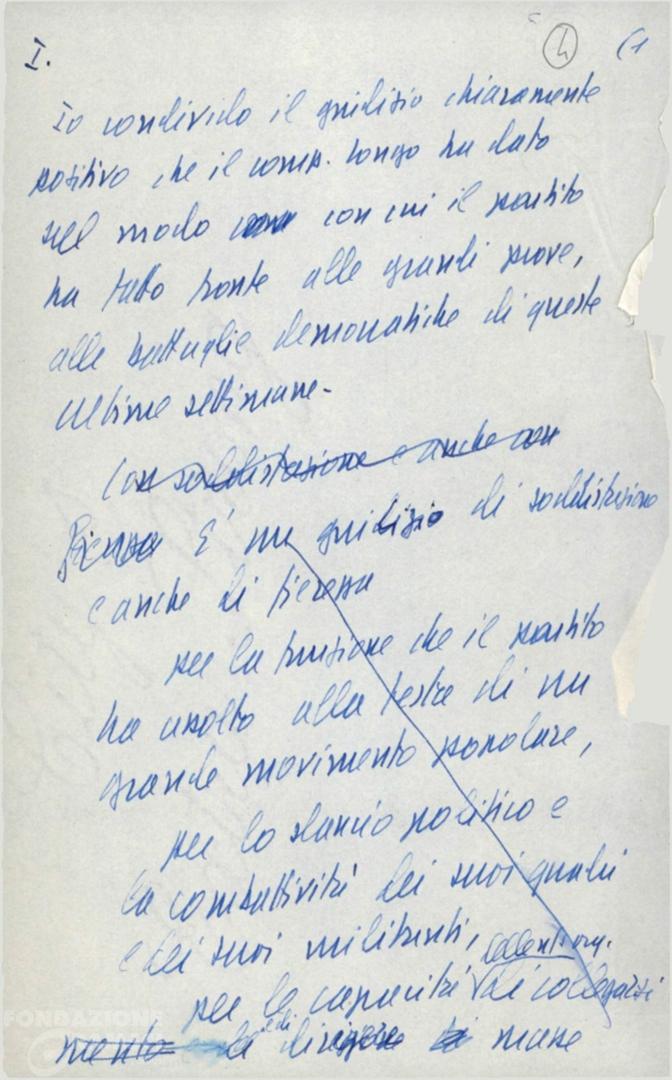 I. 4 (1
Io condivido il giudizio chiaramente
positivo che il comp. Longo ha dato
sul modo con cui il partito
ha fatto fronte alle grandi prove,
alle battaglie democratiche di queste
ultime settimane.
Con soddisfazione e anche con
È un giudizio di soddisfazione
e anche di fierezza
per la funzione che il partito
ha assolto alla testa di un
grande movimento popolare,
per lo slancio politico e
la combattività dei suoi quadri
e dei suoi militanti,
per le capacità di collegarsi
mento e di dirigere masse
FONDAZIONE